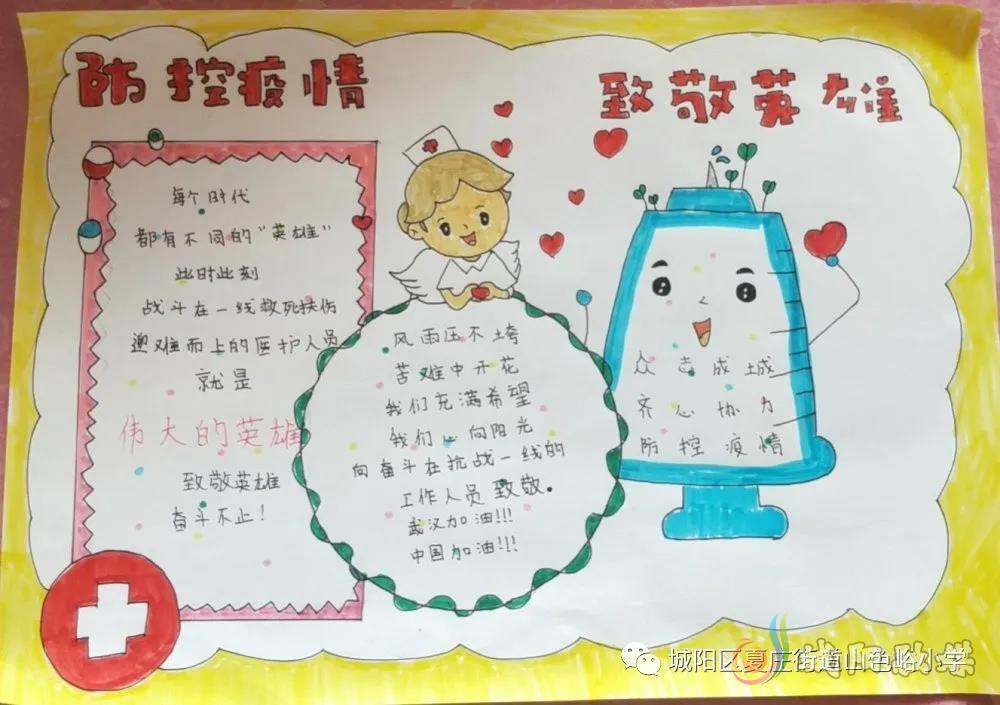 防控疫情
致敬英雄
每个时代
都有不同的“英雄”
此时此刻
战斗在一线救死扶伤
迎难而上的医护人员
就是
伟大的英雄
致敬英雄
奋斗不止!
风雨压不垮
苦难中开花
我们充满希望
我们心向阳光
向奋斗在抗战一线的
工作人员致敬。
武汉加油!!!
中国加油!!!
众志成城
齐心协力
防控疫情
城阳区夏庄街道山色峪小学